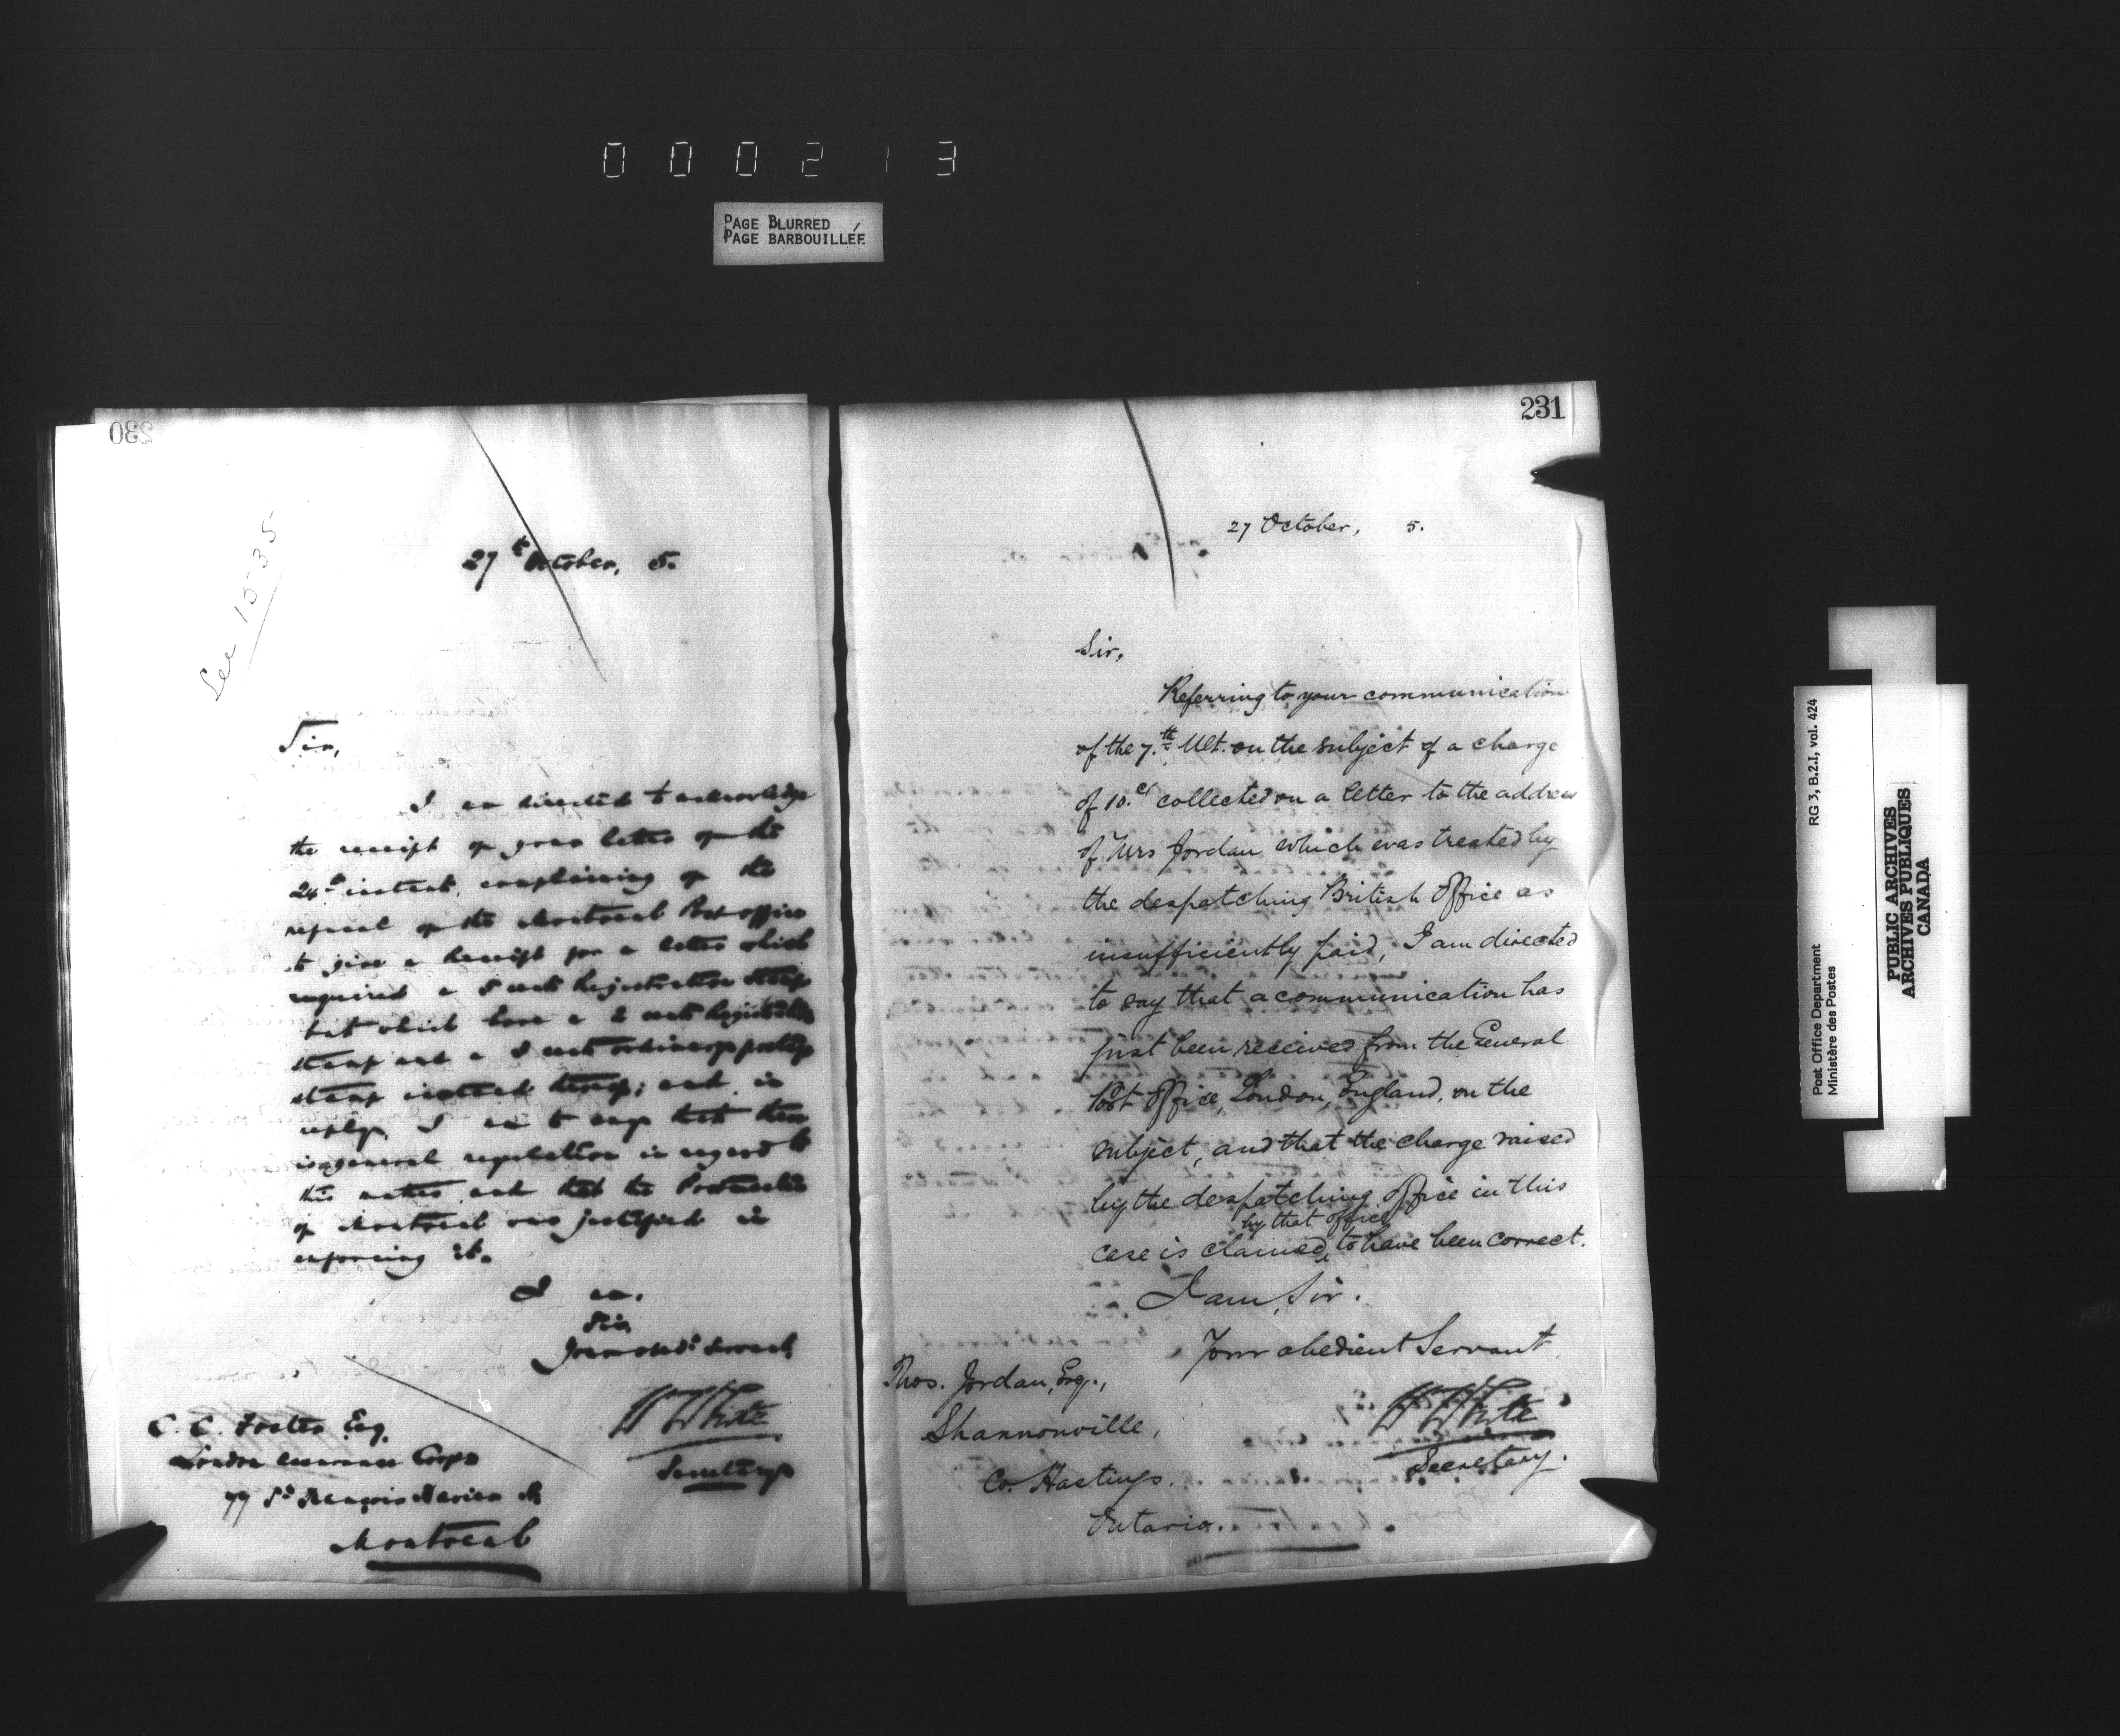 000213
PAGE BLURRED
PAGE BARBOUILLÉE
230
See 1535
27th October, 5.
Sir,
I am directed to acknowledge
the receipt of your letter of the
24th instant, complaining of the
refusal of the Montreal Post office
to give a Receipt for a letter which
required a 5 cent Registration Stamp
but which bore a 2 cent Registration
stamp and a 3 cent ordinary postage
stamp instead thereof; and in
reply, I am to say that there
is a general regulation in regard to
this matter and that the Postmaster
of Montreal was justified in
enforcing it.
I am,
Sir,
Your obedt Servant,
W White
Secretary
C. C. Foster Esq.
London Assurance Corpn
77 St François Xavier St
Montreal
231
27 October, 5.
Sir,
Referring to your communication
of the 7th Ult. on the subject of a charge
of 10cs collected on a letter to the address
of Mrs Jordan which was treated by
the despatching British Office as
insufficiently paid, I am directed
to say that a communication has
just been received from the General
Post Office, London, England, on the
subject, and that the charge raised
by the despatching office in this
by that office
case is claimed to have been correct.
I am, Sir.
Your obedient Servant,
W White
Secretary.
Thos. Jordan, Esq.,
Shannonville,
Co. Hastings.
Ontario.
Post Office Department
Ministère des Postes
RG 3, B.2.I, vol. 424
PUBLIC ARCHIVES
ARCHIVES PUBLIQUES
CANADA